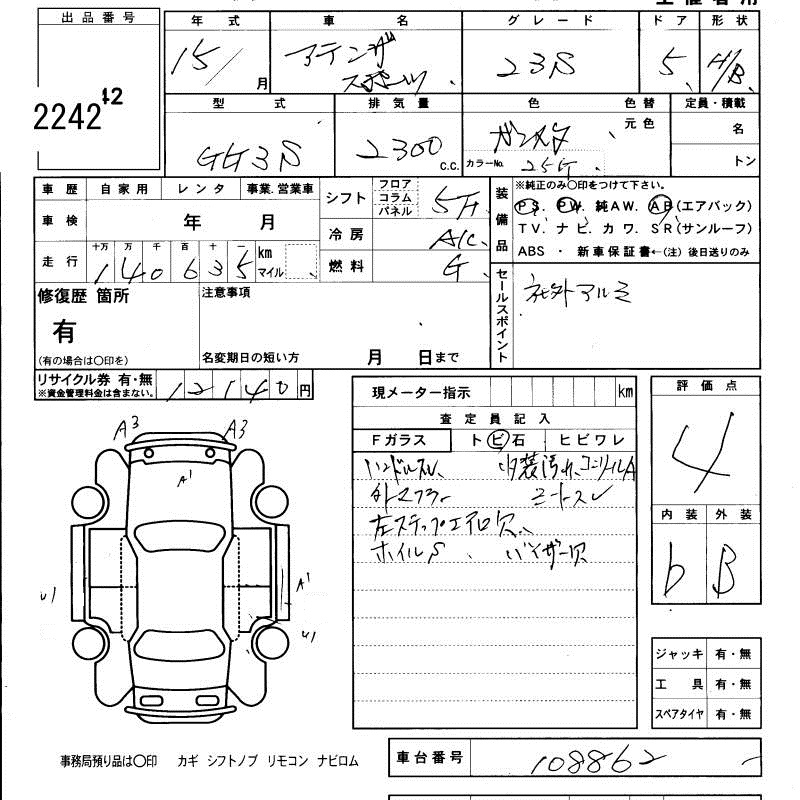 出品番号
2242
42
年式 車名 グレード ドア 形状
15/ 月 アテンザ スポーツ 23S 5 H/B
型式 排気量 色 色替 定員・積載
GG3S 2300 C.C. ガンメタ 元色 名
カラーNo. 25F トン
車歴 自家用 レンタ 事業.営業車
車検 年 月
走行 十万 万 千 百 十 一 km マイル
140635
シフト フロア コラム パネル 5F
冷房 A/C
燃料 G
装備品
※純正のみ〇印をつけて下さい。
PS. PW. 純AW. AB(エアバック)
TV. ナビ. カワ. SR(サンルーフ)
ABS ・ 新車保証書←(注) 後日送りのみ
修復歴 箇所
有
(有の場合は〇印を)
注意事項
名変期日の短い方 月 日まで
セールスポイント
社外アルミ
リサイクル券 有・無 12140円
※資金管理料金は含まない。
現メーター指示 km
査定員記入
Fガラス トビ石 ヒビワレ
ハンドルスレ 内装汚れ、コンソールA
外マフラー シートスレ
左ステップエアロ欠
ホイルS バイザー欠
評価点
4
内装 外装
b B
A3 A3
A1
A1
U1 U1
ジャッキ 有・無
工具 有・無
スペアタイヤ 有・無
事務局預り品は〇印 カギ シフトノブ リモコン ナビロム
車台番号 108862